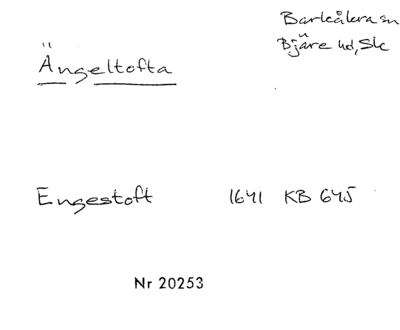 Barkåkra sn
Bjäre hd, Sk
Ängeltofta
Engestoft 1641 KB 645
Nr 20253